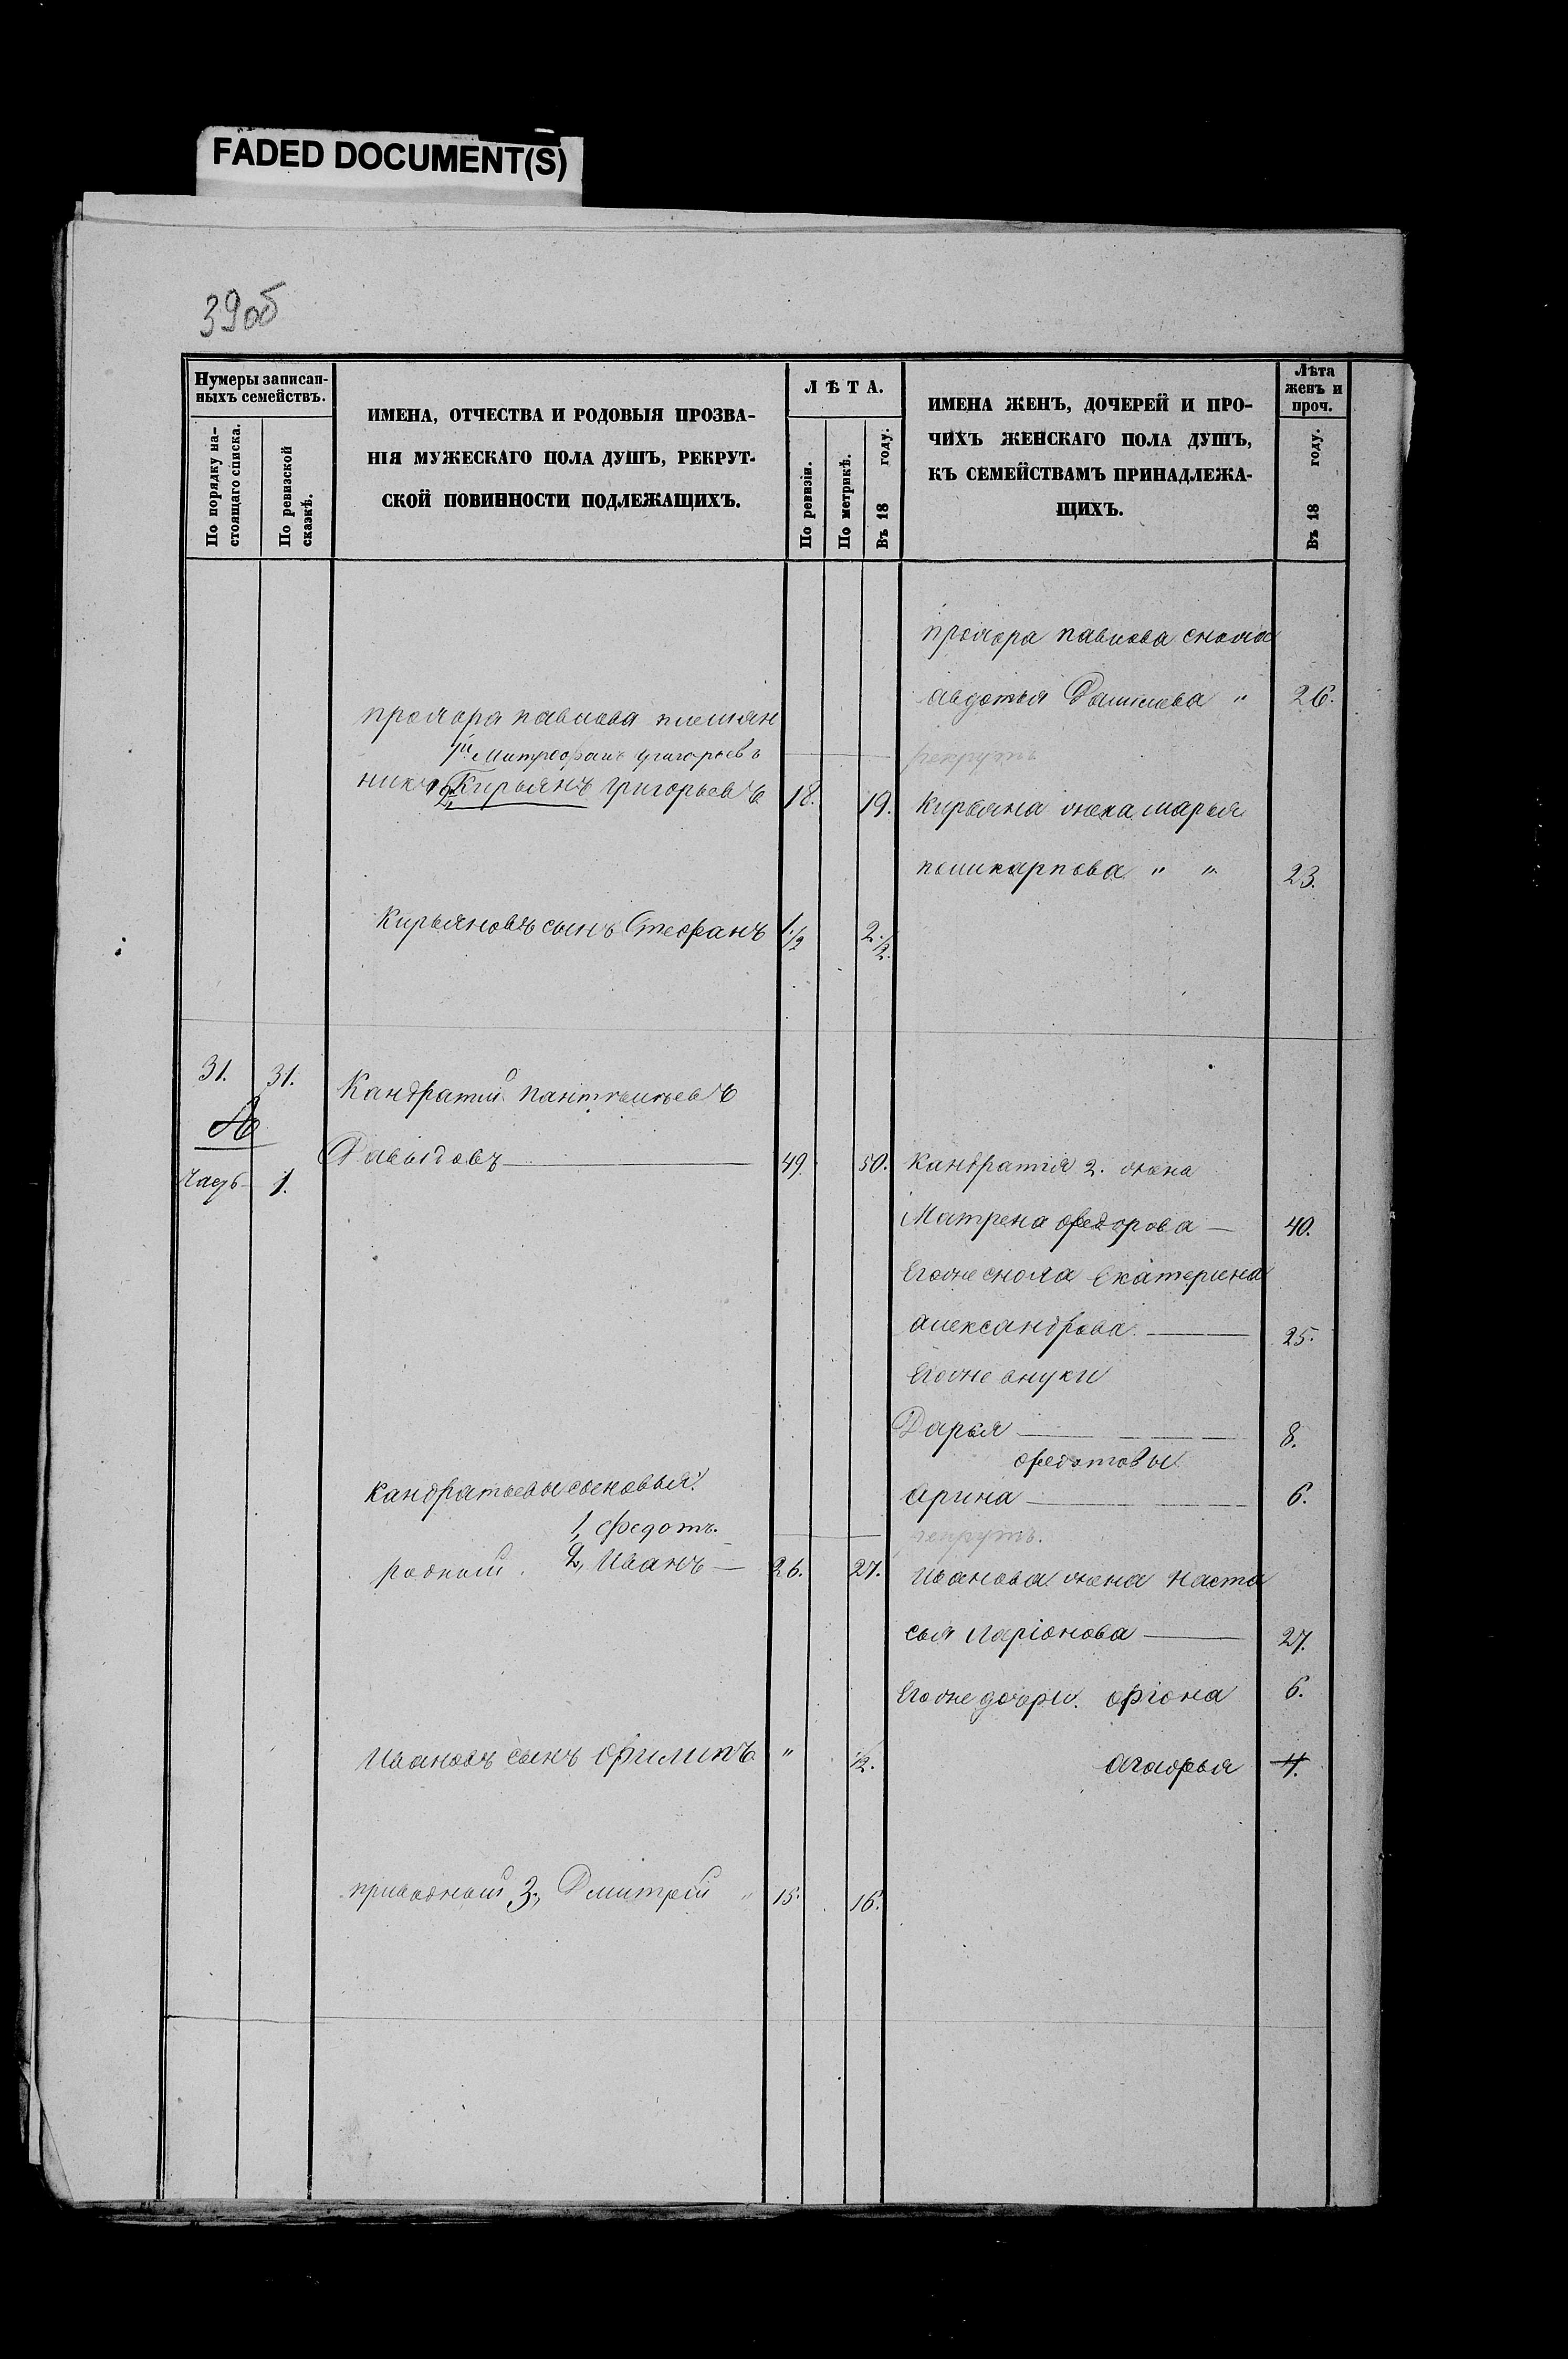 FADED DOCUMENT(S)
39об
Нумеры записан-
ныхъ семействъ.
По порядку на-
стоящаго списка.
По ревизской
сказкѣ.
ИМЕНА, ОТЧЕСТВА И РОДОВЫЯ ПРОЗВА-
НІЯ МУЖЕСКАГО ПОЛА ДУШЪ, РЕКРУТ-
СКОЙ ПОВИННОСТИ ПОДЛЕЖАЩИХЪ.
ЛѢТА.
По ревизіи.
По метрикѣ.
Въ 18 году.
ИМЕНА ЖЕНЪ, ДОЧЕРЕЙ И ПРО-
ЧИХЪ ЖЕНСКАГО ПОЛА ДУШЪ,
КЪ СЕМЕЙСТВАМЪ ПРИНАДЛЕЖА-
ЩИХЪ.
Лѣта
женъ и
проч.
Въ 18 году.
прохора павлова сноха
авдотья " 26.
прохора павлова племян
1й Митрофанъ григорьевъ рекрутъ
никъ 2, Кирьянъ григорьевъ 18. 19. Кирьяна жена марья
поликарпова " " 23.
Кирьяновъ сынъ Стефанъ 1/2 2 1/2
31. 31. Кандратий пантѣлѣевъ
Давыдовъ 49. 50. Кандратія 2. жена
1.
Матрена федорова — 40.
Егоже сноха Екатерина
александрова — 25.
Егоже внуки
Дарья — 8.
федотовы
кандратьевы сыновья:
арина — 6.
1, федотъ. рекрутъ.
родной. 2, Иванъ — 26. 27. Иванова жена наста
сья ларіонова — 27.
Егоже дочери. фіона 6.
Ивановъ сынъ филипъ " 1/2. агафья 4.
приводный 3, Дмитрей " 15. 16.